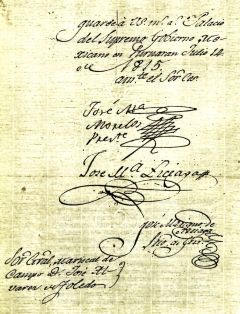 guarde à V. S. m.s a.s Palacio
del Supremo Gobierno Me-
xicano en Puruaran Julio 14
de 1815
José Ma.
Morelos
Presi.te
José M.a Liceaga
Sor. Gral. Mariscal de
Campo D. José Al-
varez de Toledo